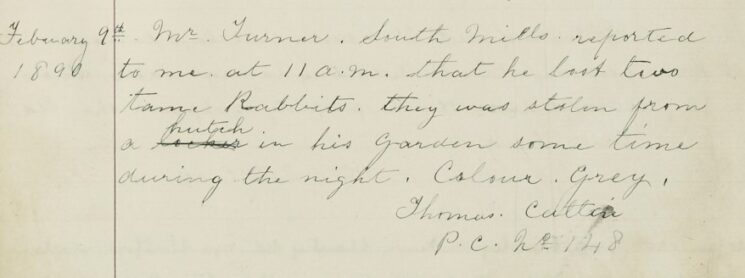 February 9th. Mr. Turner. South Mills. reported
1890 to me. at 11 a.m. that he lost two
tame Rabbits. they was stolen from
hutch.
a locker in his Garden some time
during the night. Colour. Grey.
Thomas. Cattin
P.C. No 148